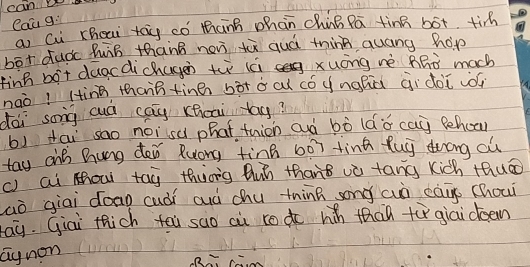 cần
Câu 9:
a) Củ khoai tây có thành phần chính là tinh bột, tinh
bột được hình thành nơn từ quá trình quang hợp
tinh bột được di chuyển từ lá xuống rễ nhờ mạch
nào? Hình thành tinh bột ở củ có ý nghĩa gì đối với
đời sống của cây khoai tây?
b) tại sao nói sự phát triển của bộ lá ở cây khoai
tây ảnh hưởng đến lượng tinh bột tinh lũy trong củ
c) củ khoai tây thường hình thành và tăng kích thước
vào giai đoạn cuối của chu trình sống của cây khoai
tây. Giải thích tại sao củ ko dc hình thành từ giai đoạn
cây non
Bài làm